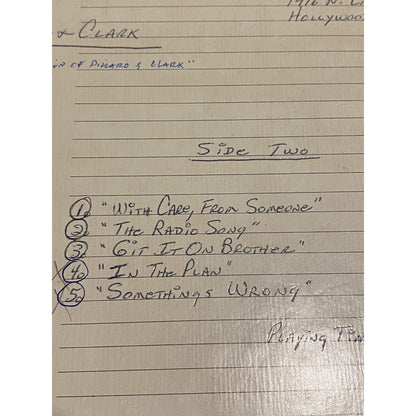 1916 N.
HOLLYWOO
& CLARK
ON OF DILLARD & CLARK"
SIDE TWO
1. "WITH CARE, FROM SOMEONE"
2. "THE RADIO SONG"
3. "GIT IT ON BROTHER"
X 4. "IN THE PLAN"
X 5. "SOMETHINGS WRONG"
PLAYING TIM